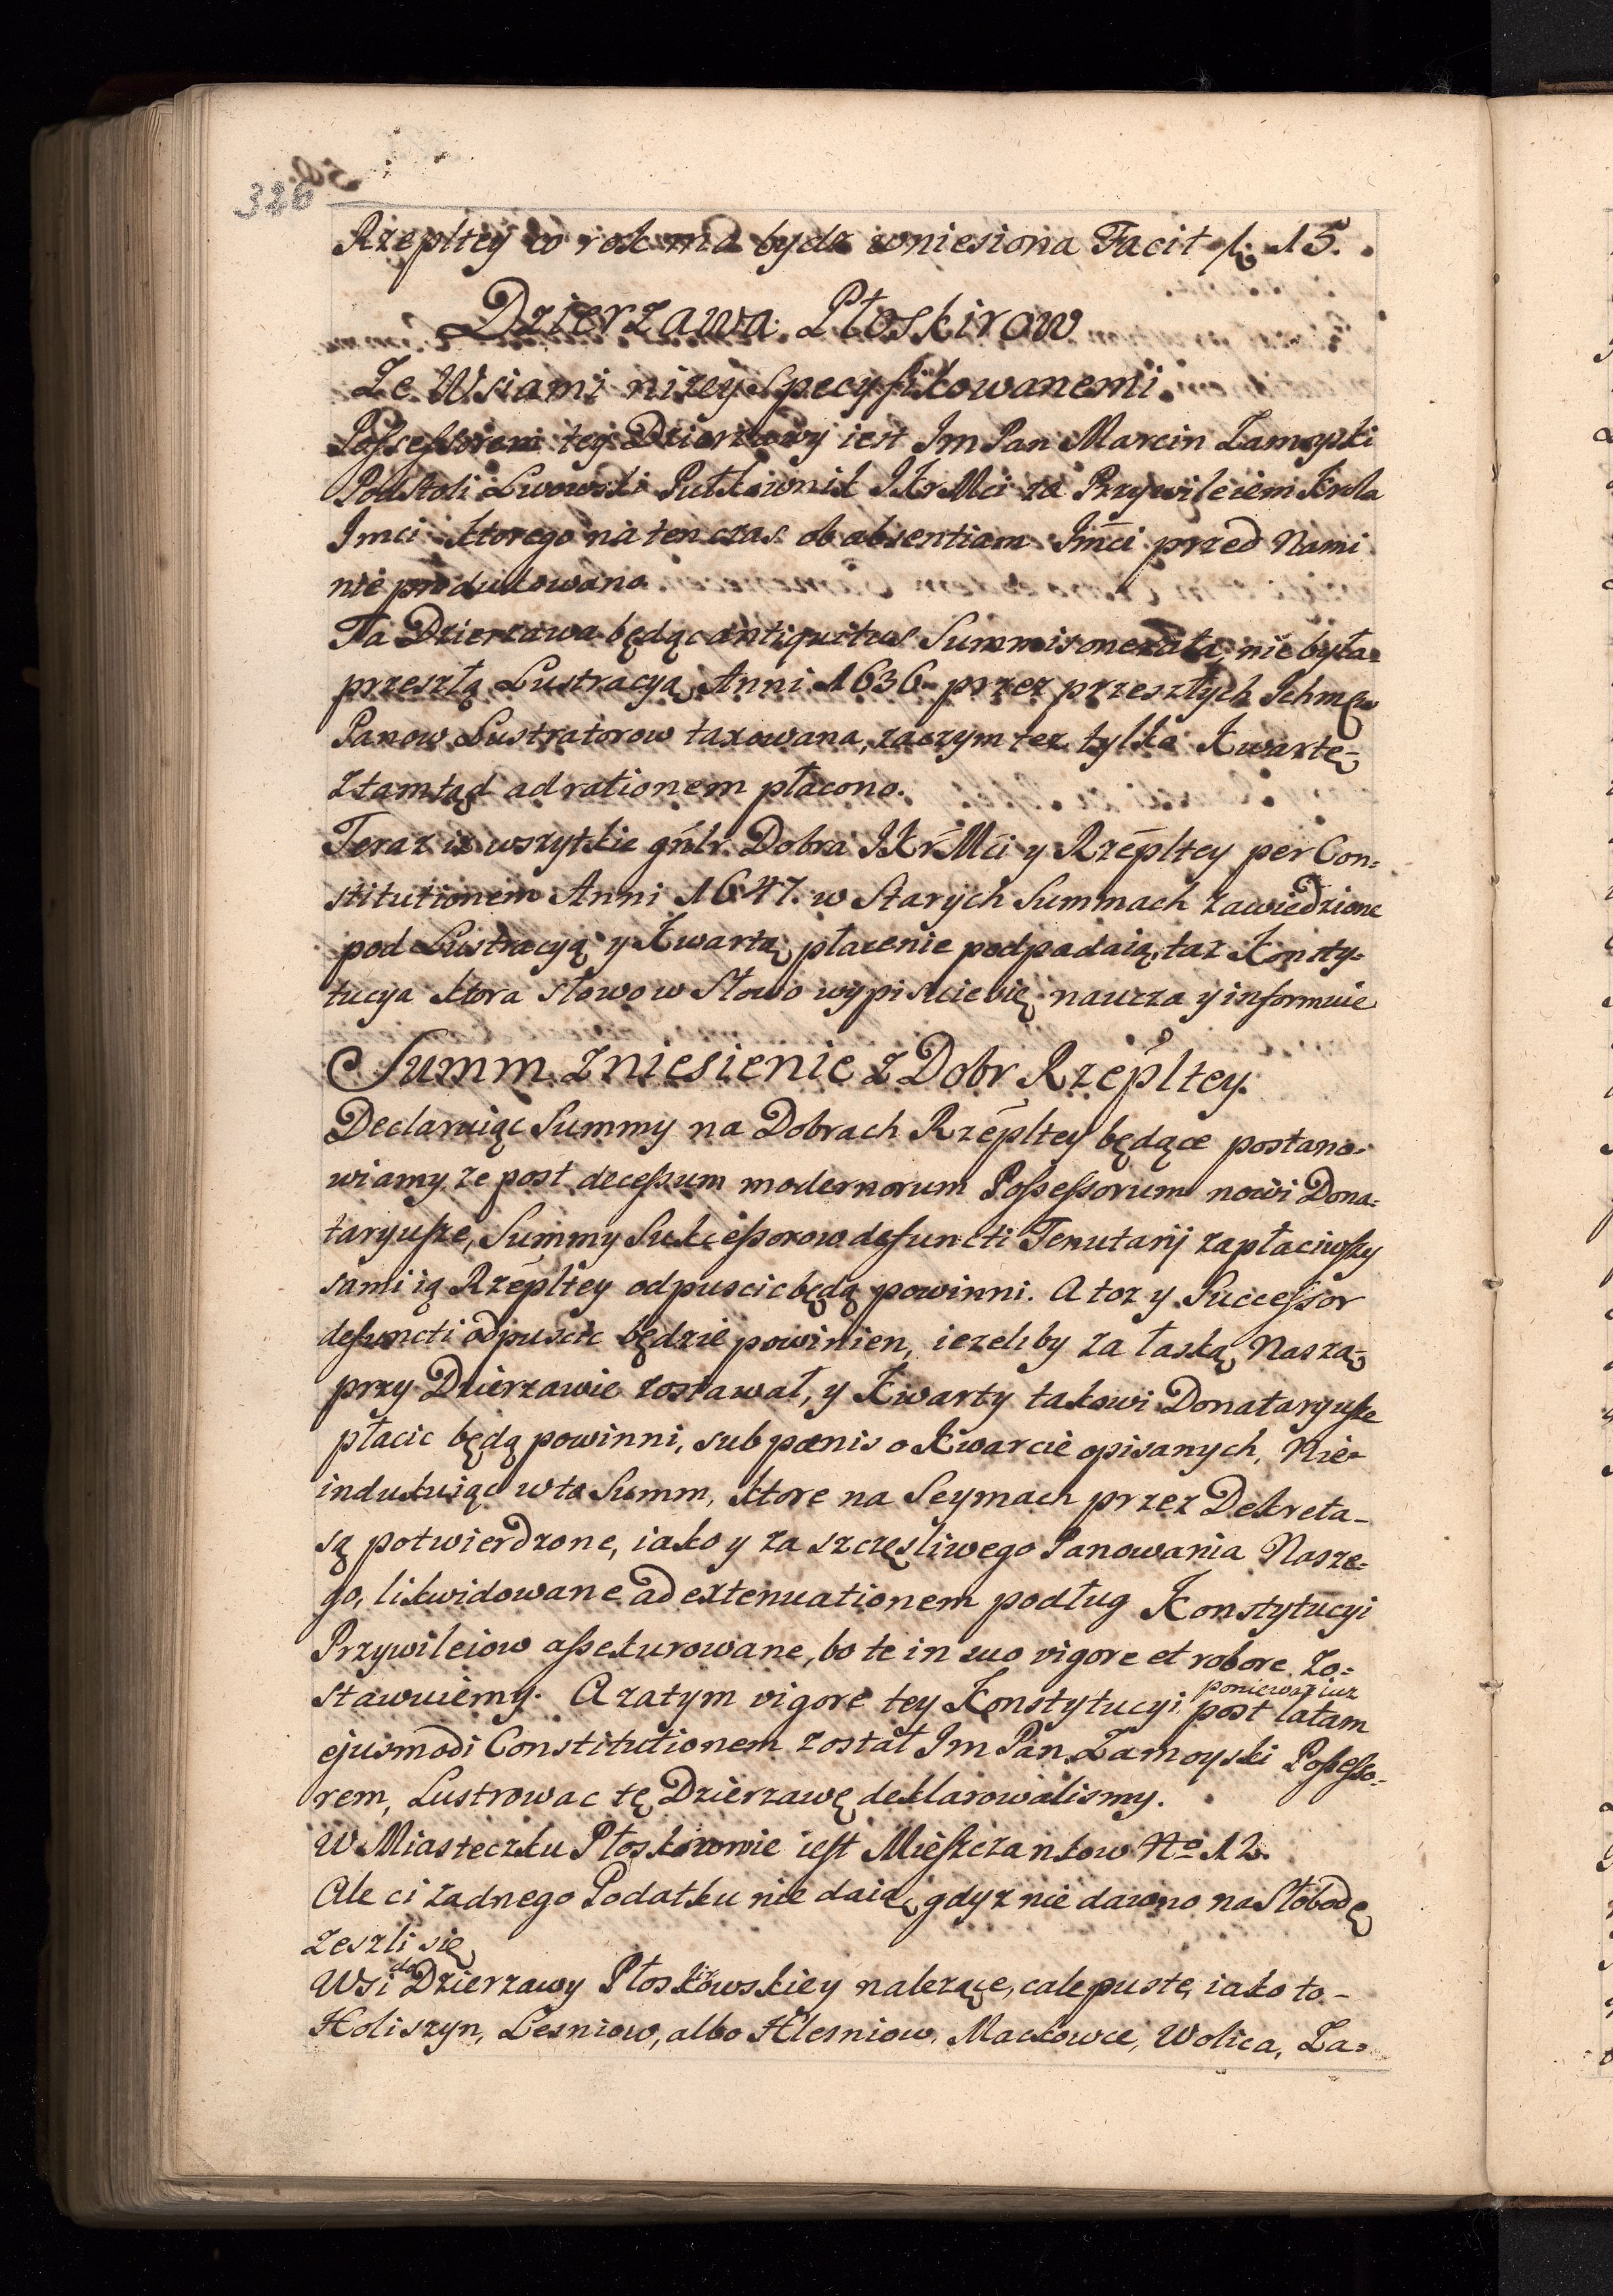 326
Rzepltey co rok ma bydz wniesiona Facit fl. 15.
Dzierzawa Płoskirow
Ze Wsiami nizey Specyfikowanemi.
Possessorem tey Dzierzawy iest Im Pan Marcin Zamoyski
Podstoli Lwowski Pułkownik JKr Mci za Przywileiem Krola
Jmci ktorego na ten czas ob absentiam Jm̄ci przed Nami
nie produkowano.
Ta Dzierzawa będąc antiquitus Summis onerata, nie była
przeszłą Lustracyą Anni 1636. przez przeszłych Ichmćw
Panow Lustratorow taxowana, zaczym tez tylko Kwartę
ztamtąd ad rationem płacono.
Teraz iz wszytkie gn̄lr. Dobra JKr̄ Mci y Rzēpltey per Con=
stitutionem Anni 1647. w Starych Summach zawiedzione
pod Lustracyą y Kwartą płacenie podpadaią, taz Konsty=
tucya ktora słowo w Słowo wypiście się naucza y informuie
Summ zniesienie z Dobr Rzēpltey.
Declaruiąc Summy na Dobrach Rzēpltey będące postano=
wiamy, ze post decessum modernorum Possessorum nowi Dona=
taryusze, Summy Sukcessorow defuncti Tenutarij zapłaciwszy
sami ią Rzēpltey odpuscic będą powinni. A toz y Successor
defuncti odpuscic będzie powinien, iezeliby za łaską Naszą
przy Dzierzawie zostawał, y Kwarty takowi Donataryusze
płacic będą powinni, sub pœnis o Kwarcie opisanych, Nie=
indukuiąc w to Summ, ktore na Seymach przez Dekreta
są potwierdzone, iako y za szczęsliwego Panowania Nasze=
go, likwidowane ad extenuationem podług Konstytucyi
Przywileiow assekurowane, bo te in suo vigore et robore Zo=
stawuiemy. A zatym vigore tey Konstytucyi poniewaz iuz post latam
ejusmodi Constitutionem został Im Pan Zamoyski Possesso=
rem, Lustrowac tę Dzierzawę deklarowalismy.
W Miasteczku Płoskirowie iest Mieszczankow No 12.
Ale ci zadnego Podatku nie daią, gdyz nie dawno na Słobodę
Zeszli się
Wsi do Dzierzawy Płoskirowskiey nalezące, cale puste, iako to
Holiszyn, Lesniow, albo Hlesniow, Mackowce, Wolica, Za=